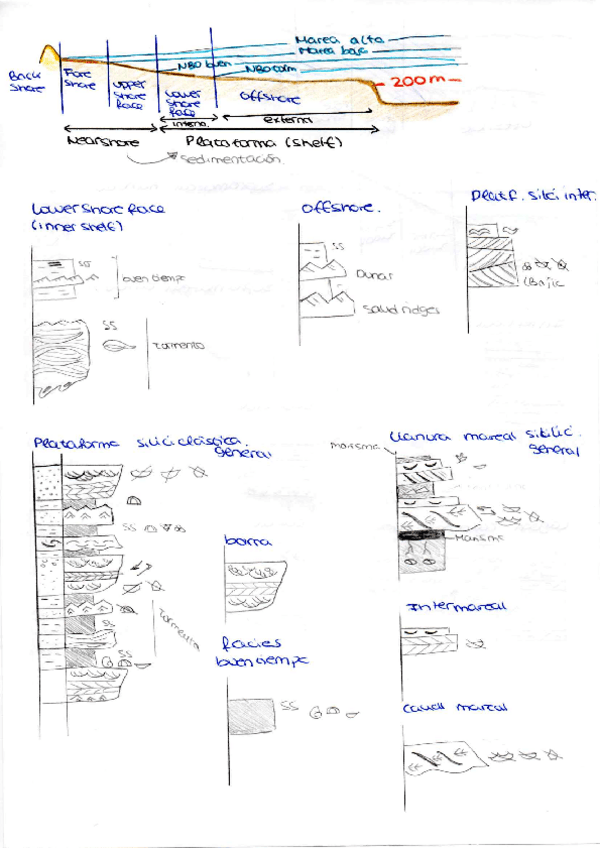 Marea alta
Marea baja
NBO buen
NBO torm
200m
Back
shore
Fore
shore
upper
shore
face
Lower
shore
face
offshore
interno
externa
Nearshore
Plataforma (shelf)
sedimentación
Lower shore face
(inner shelf)
SS
buen tiempo
SS
tormenta
offshore.
SS
Dunas
Sand ridges
Platf. silici inter.
Plataforma siliciclástica.
general
SS
SS
SS
Tormenta
barra
facies
buen tiempo
SS
Llanura mareal silicic.
general
Marisma
Marisma
Intermareal
Canal mareal